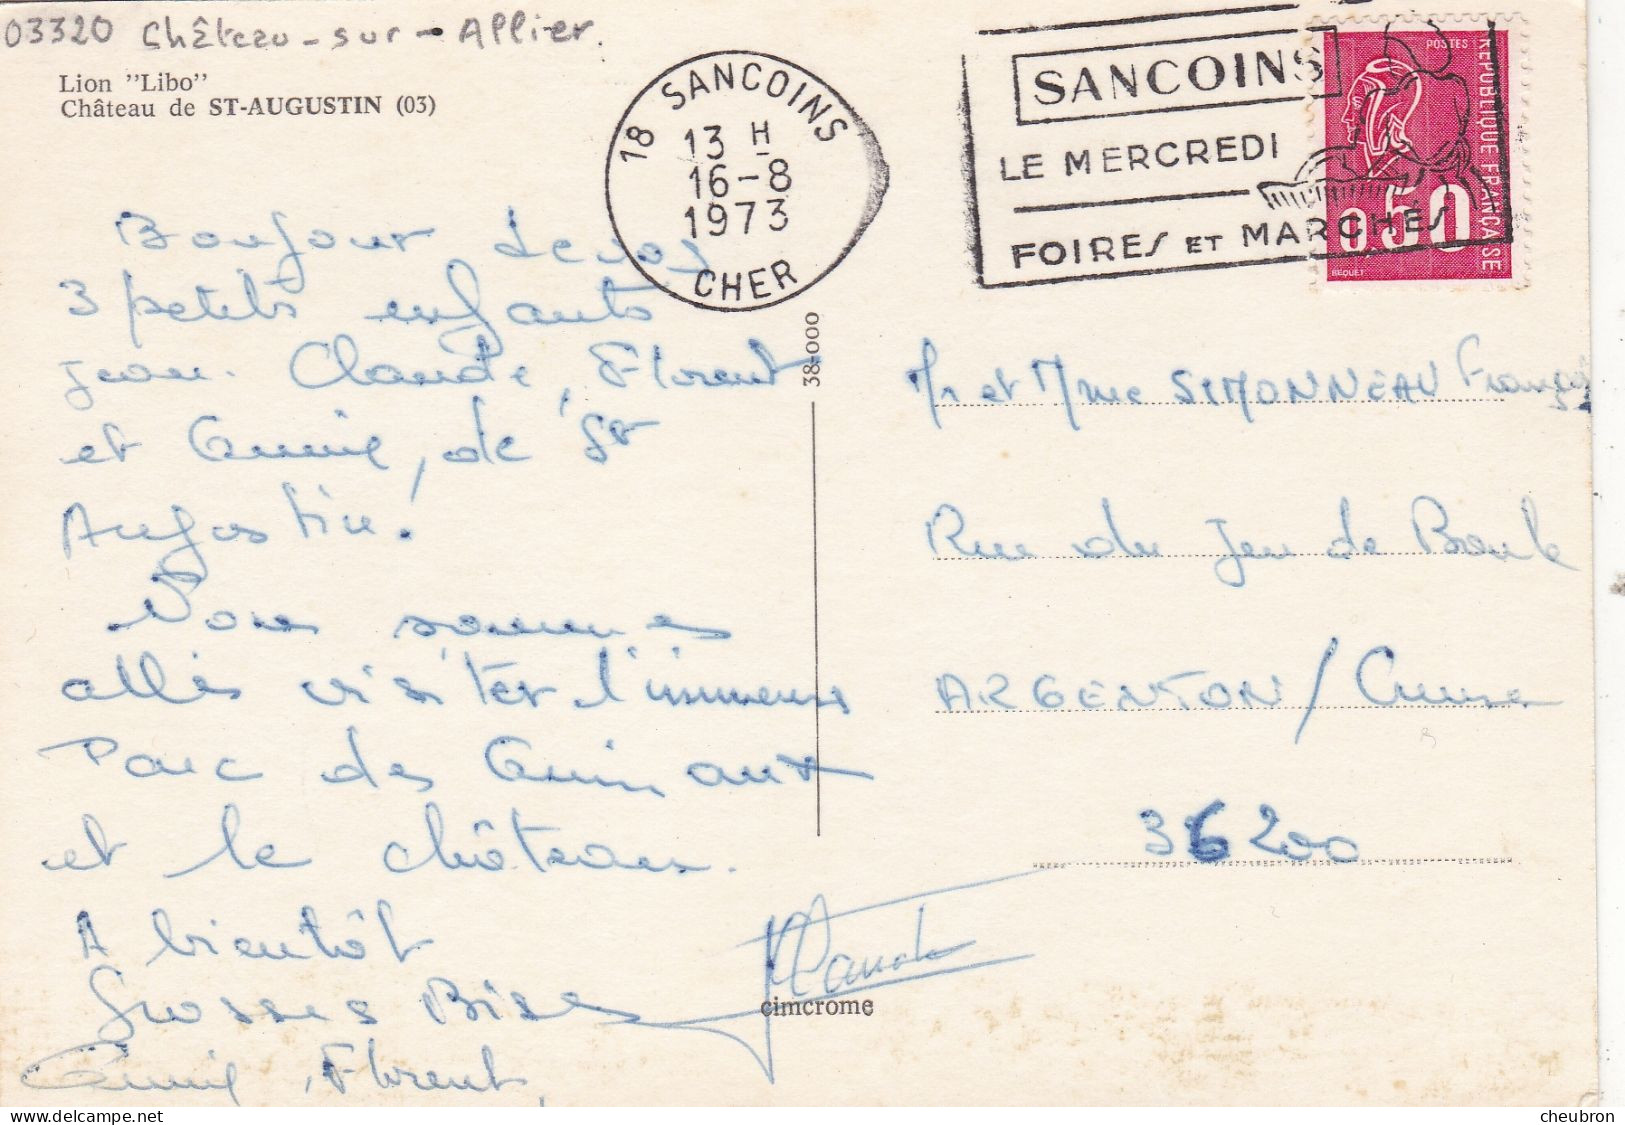 03320 Château-sur-Allier.
Lion "Libo"
Château de ST-AUGUSTIN (03)
18 SANCOINS
13 H
16-8
1973
CHER
SANCOINS
LE MERCREDI
FOIRES ET MARCHÉS
POSTES
REPUBLIQUE FRANÇAISE
0,50
BEQUET
Bonjour de vos
3 petits enfants
Jean-Claude, Florent
et Annie, de St
Augustin!
Nous sommes
allés visiter l'immense
Parc des Animaux
et le château.
A bientôt
Grosses Bises
Annie, Florent,
JClaude
38-000
cimcrome
Mr et Mme SIMONNEAU François
Rue du Jeu de Boule
ARGENTON/Creuse
36200
cheubron